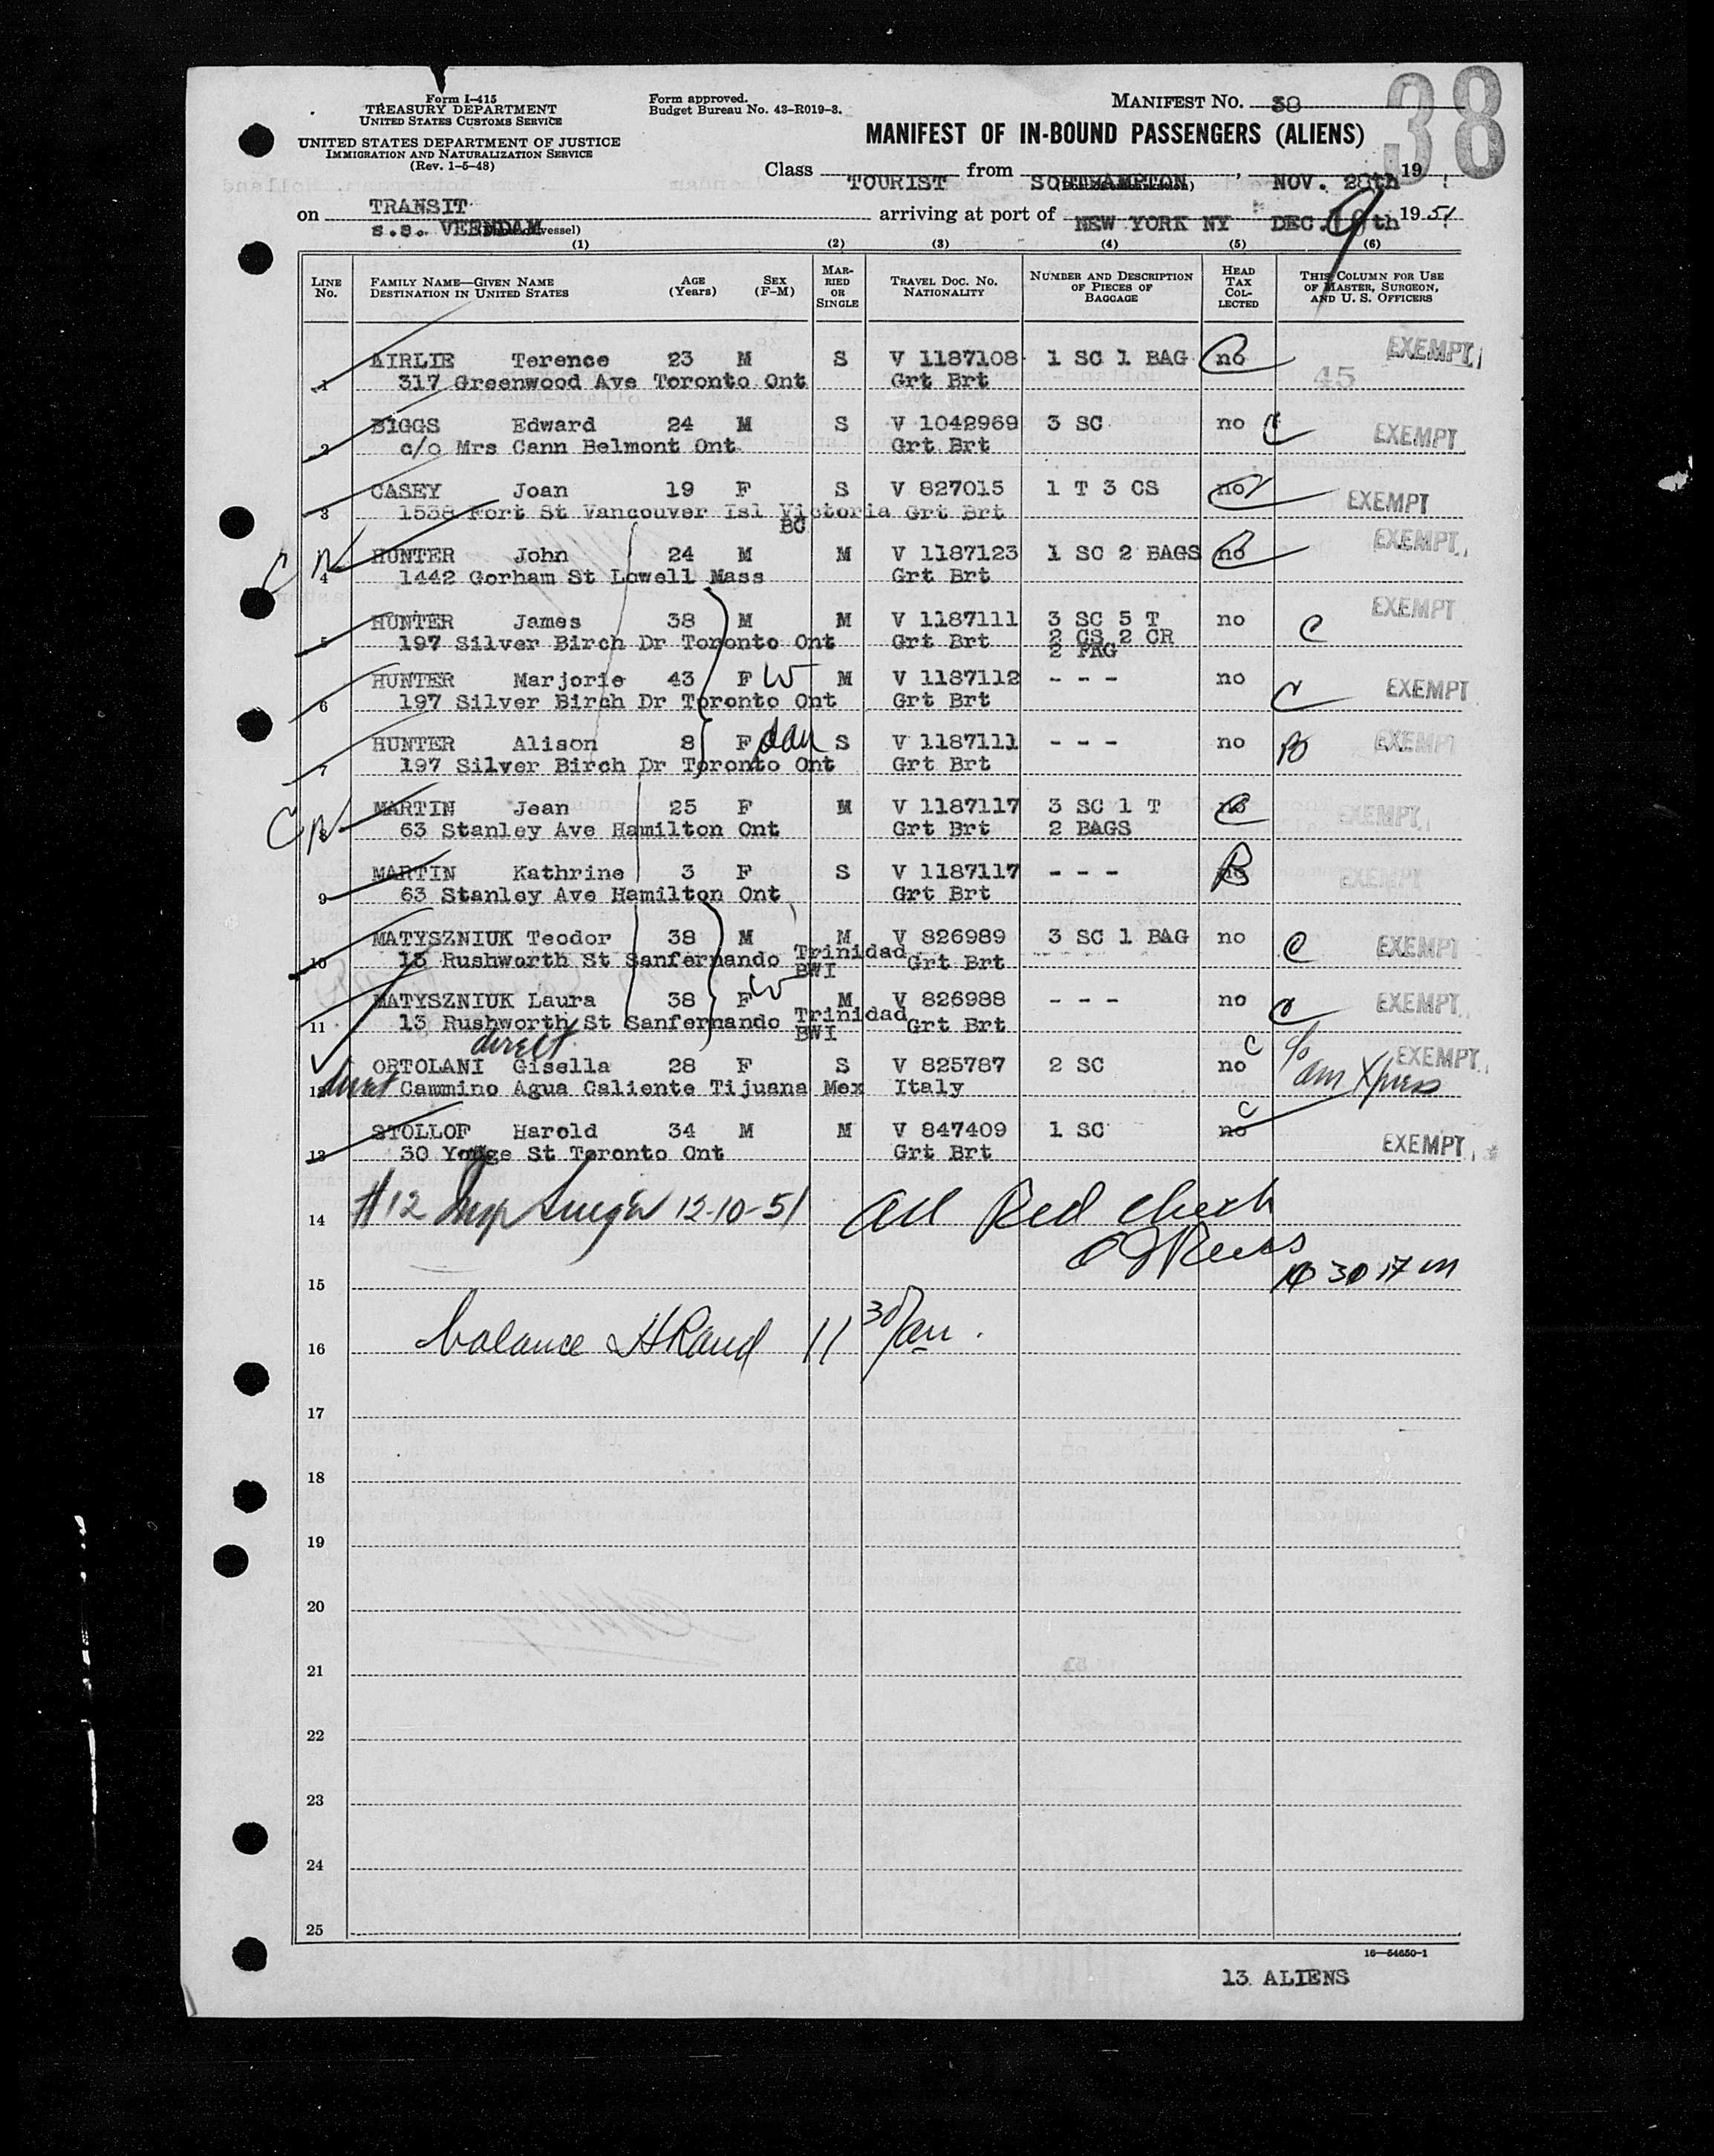 Form I-415
TREASURY DEPARTMENT
UNITED STATES CUSTOMS SERVICE
UNITED STATES DEPARTMENT OF JUSTICE
IMMIGRATION AND NATURALIZATION SERVICE
(Rev. 1-5-48)
Form approved.
Budget Bureau No. 43-R019-3.
MANIFEST NO. 38
38
MANIFEST OF IN-BOUND PASSENGERS (ALIENS)
Class TOURIST from SOUTHAMPTON, NOV. 28th 19
TRANSIT
on s.s. VEENDAM arriving at port of NEW YORK NY DEC. 9 th 1951
(1) (2) (3) (4) (5) (6)
LINE No. FAMILY NAME—GIVEN NAME DESTINATION IN UNITED STATES AGE (Years) SEX (F-M) MARRIED OR SINGLE TRAVEL DOC. NO. NATIONALITY NUMBER AND DESCRIPTION OF PIECES OF BAGGAGE HEAD TAX COLLECTED THIS COLUMN FOR USE OF MASTER, SURGEON, AND U. S. OFFICERS
AIRLIE Terence 23 M S V 1187108 1 SC 1 BAG no C EXEMPT
1 317 Greenwood Ave Toronto Ont Grt Brt 45
BIGGS Edward 24 M S V 1042969 3 SC no C EXEMPT
2 c/o Mrs Cann Belmont Ont Grt Brt
CASEY Joan 19 F S V 827015 1 T 3 CS no EXEMPT
3 1538 Fort St Vancouver Isl Victoria BC Grt Brt
C N HUNTER John 24 M M V 1187123 1 SC 2 BAGS no C EXEMPT
4 1442 Gorham St Lowell Mass Grt Brt
HUNTER James 38 M M V 1187111 3 SC 5 T no C EXEMPT
5 197 Silver Birch Dr Toronto Ont Grt Brt 2 CS 2 CR
2 PKG
HUNTER Marjorie 43 F W M V 1187112 - - - no C EXEMPT
6 197 Silver Birch Dr Toronto Ont Grt Brt
HUNTER Alison 8 F dau S V 1187111 - - - no B EXEMPT
7 197 Silver Birch Dr Toronto Ont Grt Brt
C N MARTIN Jean 25 F M V 1187117 3 SC 1 T no C EXEMPT
8 63 Stanley Ave Hamilton Ont Grt Brt 2 BAGS
MARTIN Kathrine 3 F S V 1187117 - - - no B EXEMPT
9 63 Stanley Ave Hamilton Ont Grt Brt
MATYSZNIUK Teodor 38 M M V 826989 3 SC 1 BAG no C EXEMPT
10 13 Rushworth St Sanfernando Trinidad BWI Grt Brt
MATYSZNIUK Laura 38 F W M V 826988 - - - no C EXEMPT
11 13 Rushworth St Sanfernando Trinidad BWI Grt Brt
direct
ORTOLANI Gisella 28 F S V 825787 2 SC no C c/o EXEMPT
12 Cammino Agua Caliente Tijuana Mex Italy am Xpress
STOLLOF Harold 34 M M V 847409 1 SC no C EXEMPT
13 30 Yonge St Toronto Ont Grt Brt
14 #12 Insp 12-10-51 all Red check
15 30 17 m
16 balance 11 30/am.
17
18
19
20
21
22
23
24
25
16—54650-1
13 ALIENS